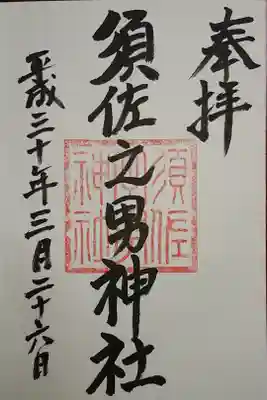 奉拝
須佐之男神社
平成三十年三月二十六日
須佐
之男
神社